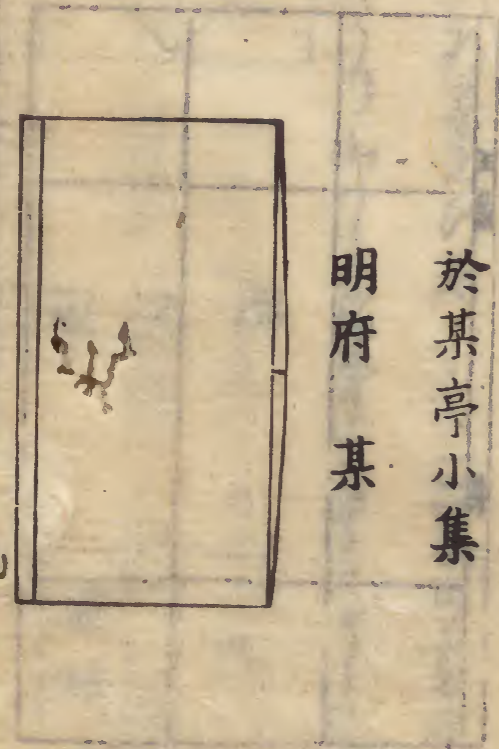 於某亭小集
明府 某